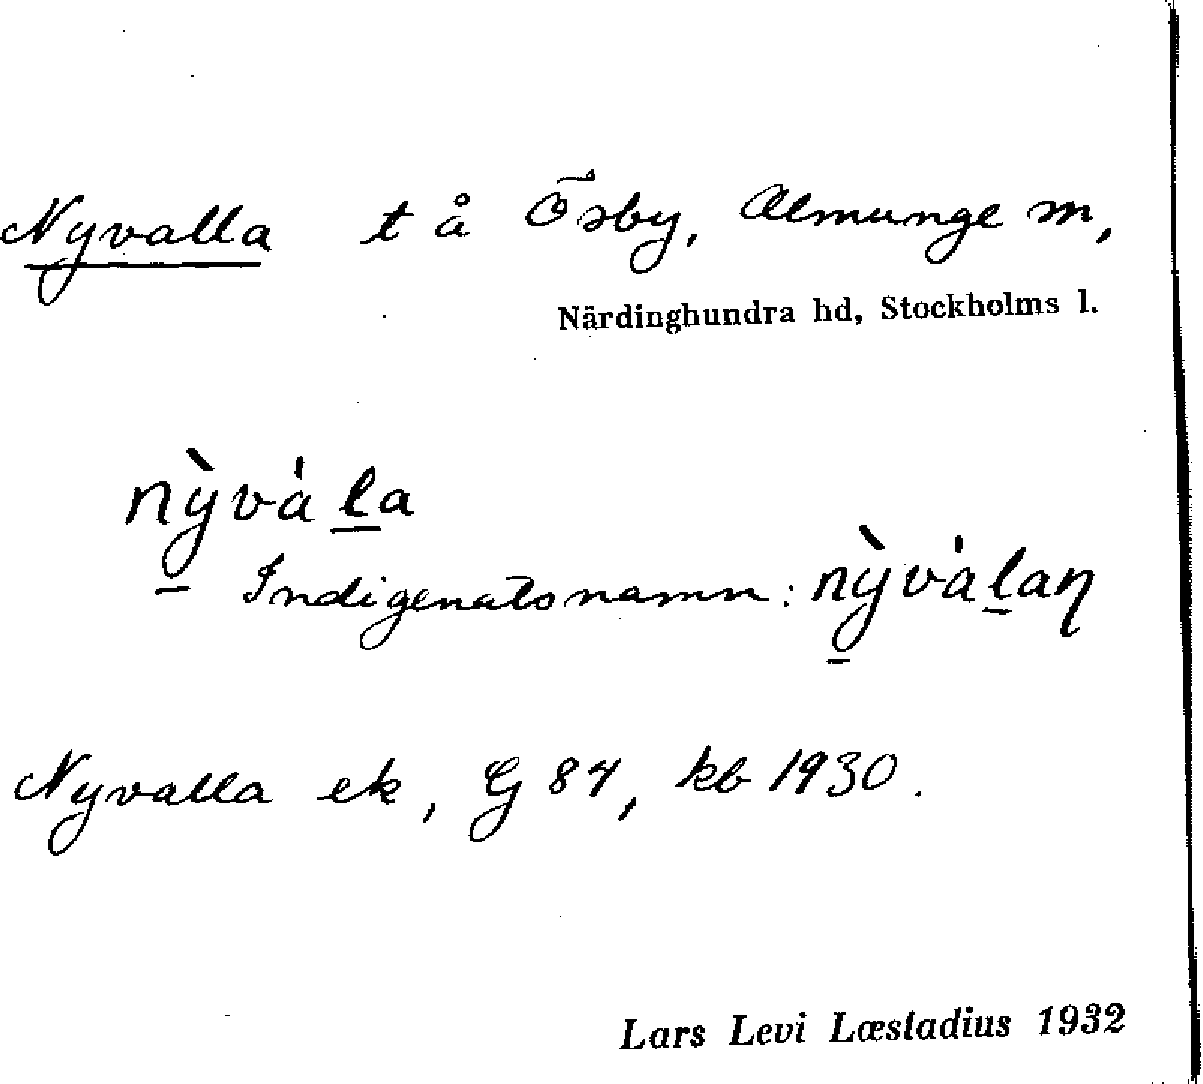 Nyvalla t å Ösby, Almunge sn,
Närdinghundra hd, Stockholms l.
nỳvàḻa
Indigenatsnamn: nỳvàḻaƞ
Nyvalla ek, G 84, kb 1930.
Lars Levi Læstadius 1932